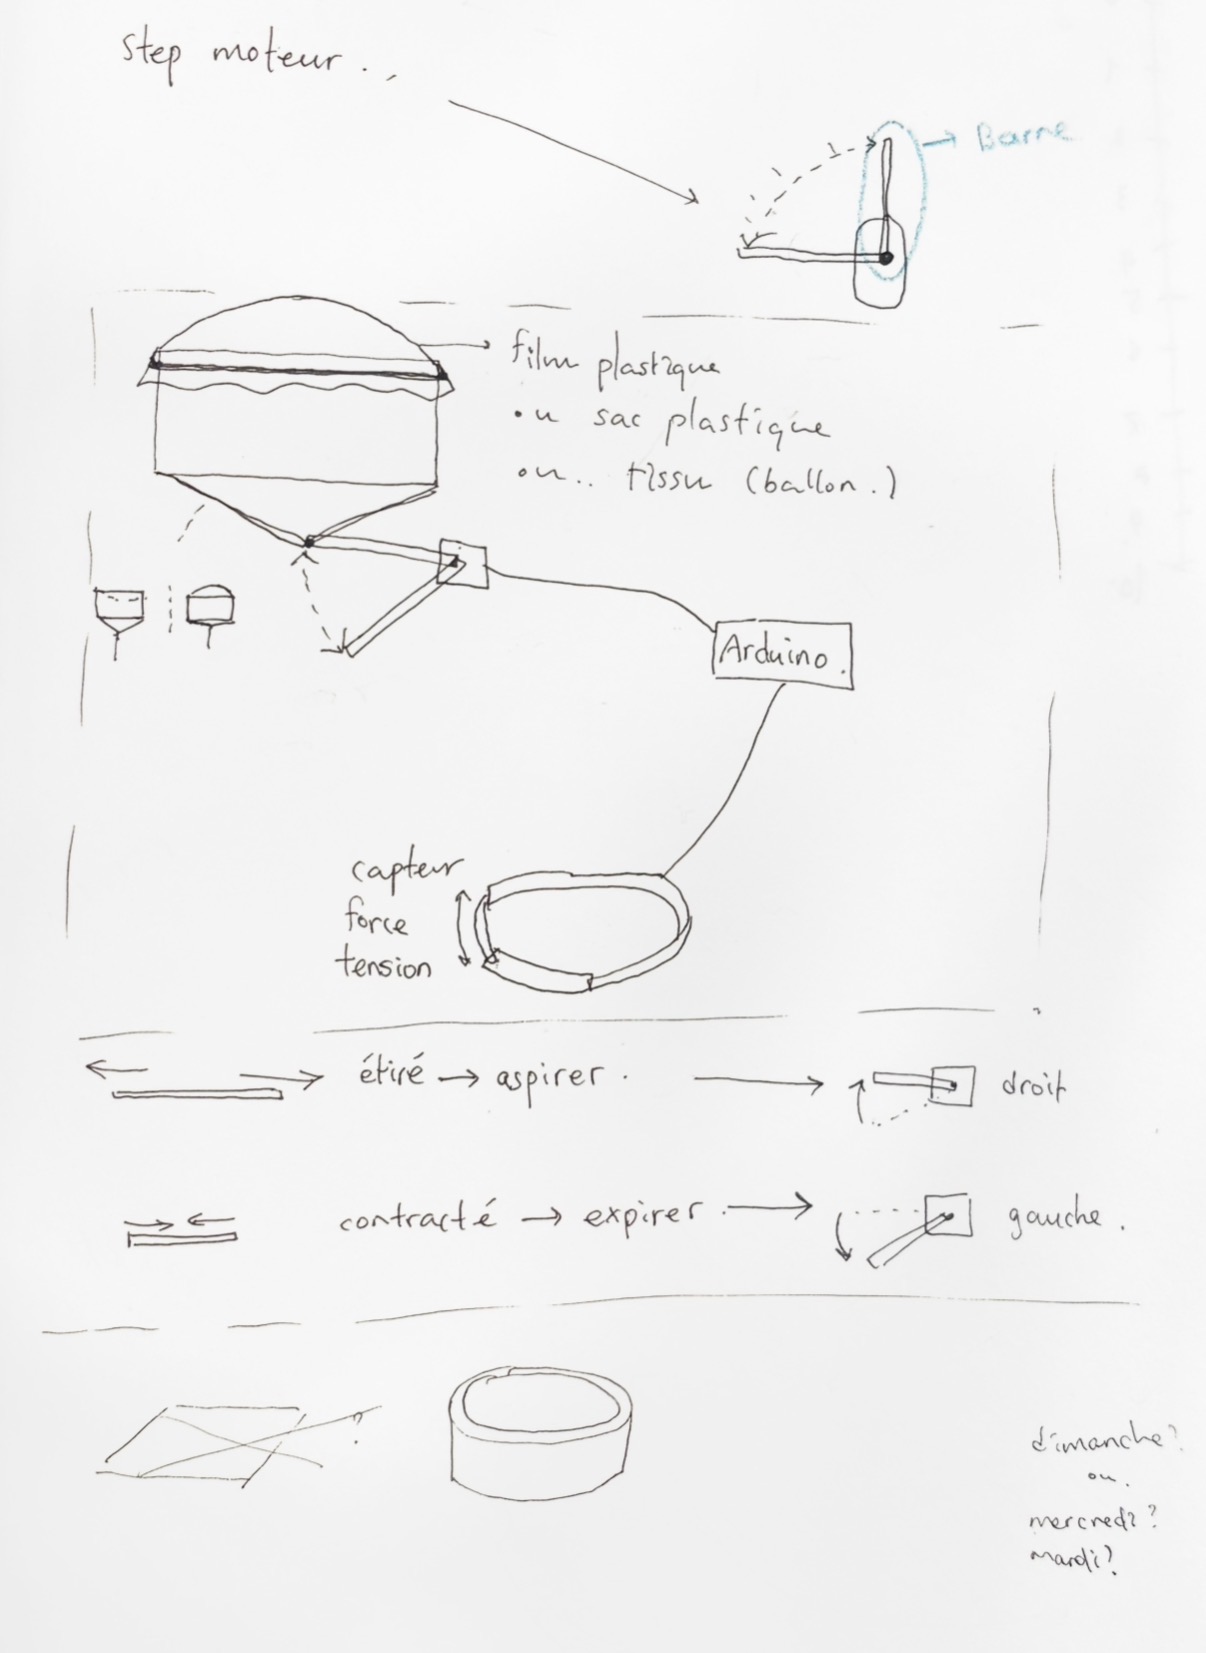 step moteur..
Barre
film plastique
ou sac plastique
ou.. tissu (ballon.)
Arduino.
capteur
force
tension
étiré → aspirer. → droit
contracté → expirer. → gauche.
?
dimanche?
ou.
mercredi?
mardi?